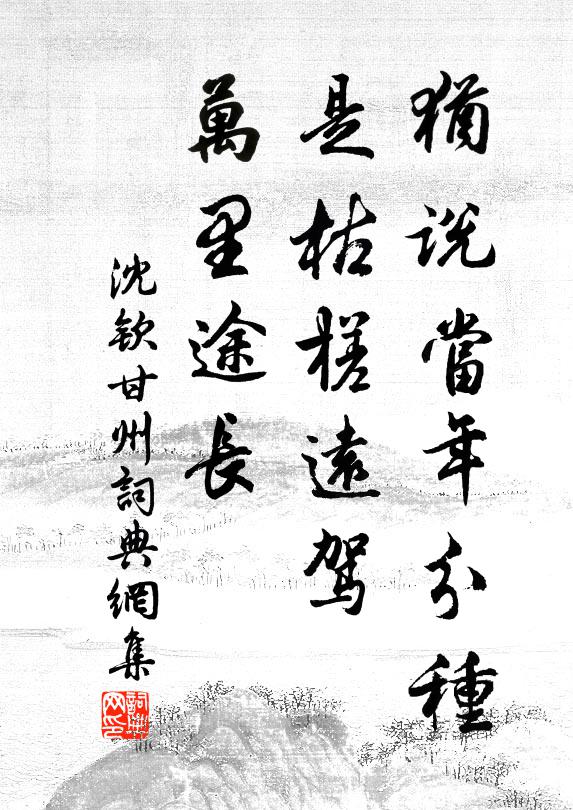 猶說當年分種
是枯槎遠駕
萬里途長
沈欽甘州詞典網集
詞典網印